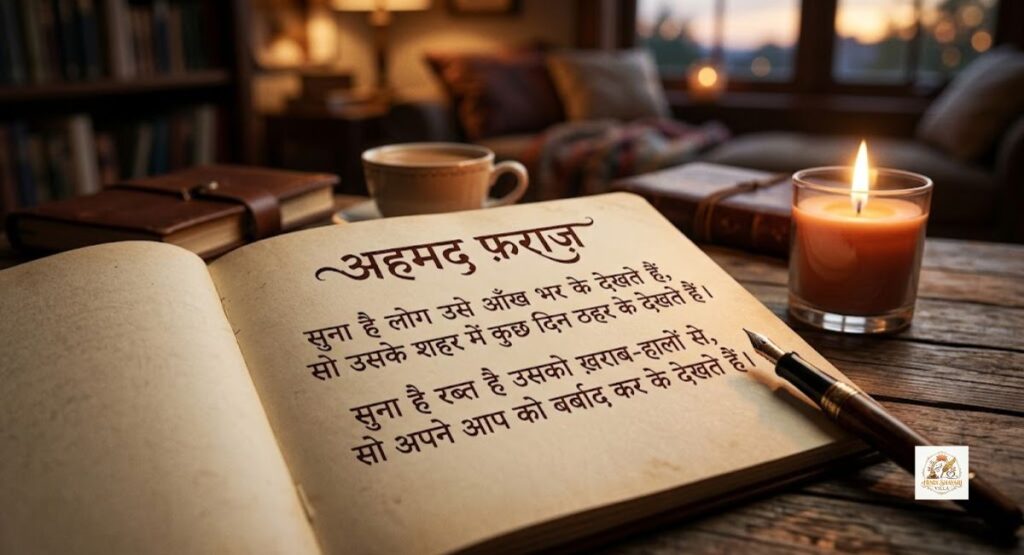 अहमद फ़राज़
सुना है लोग उसे आँख भर के देखते हैं,
सो उसके शहर में कुछ दिन ठहर के देखते हैं।
सुना है रब्त है उसको ख़राब-हालों से,
सो अपने आप को बर्बाद कर के देखते हैं।
HINDI SHAYARI
VILLA